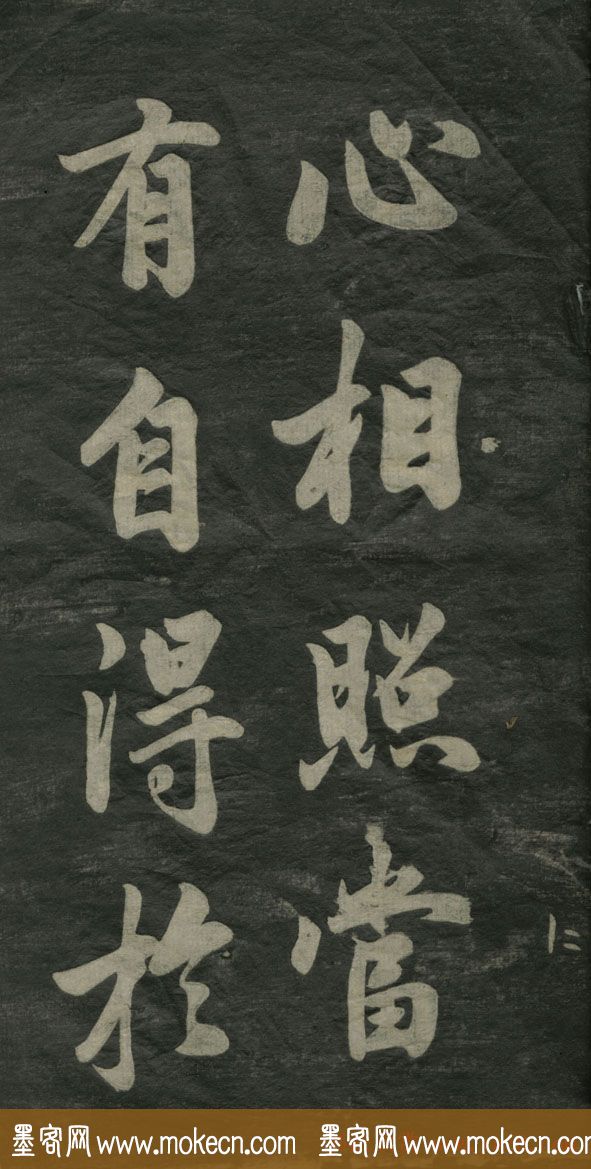 心相照當
有自得於
仁
墨客网 www.mokecn.com 墨客网 www.mokecn.com